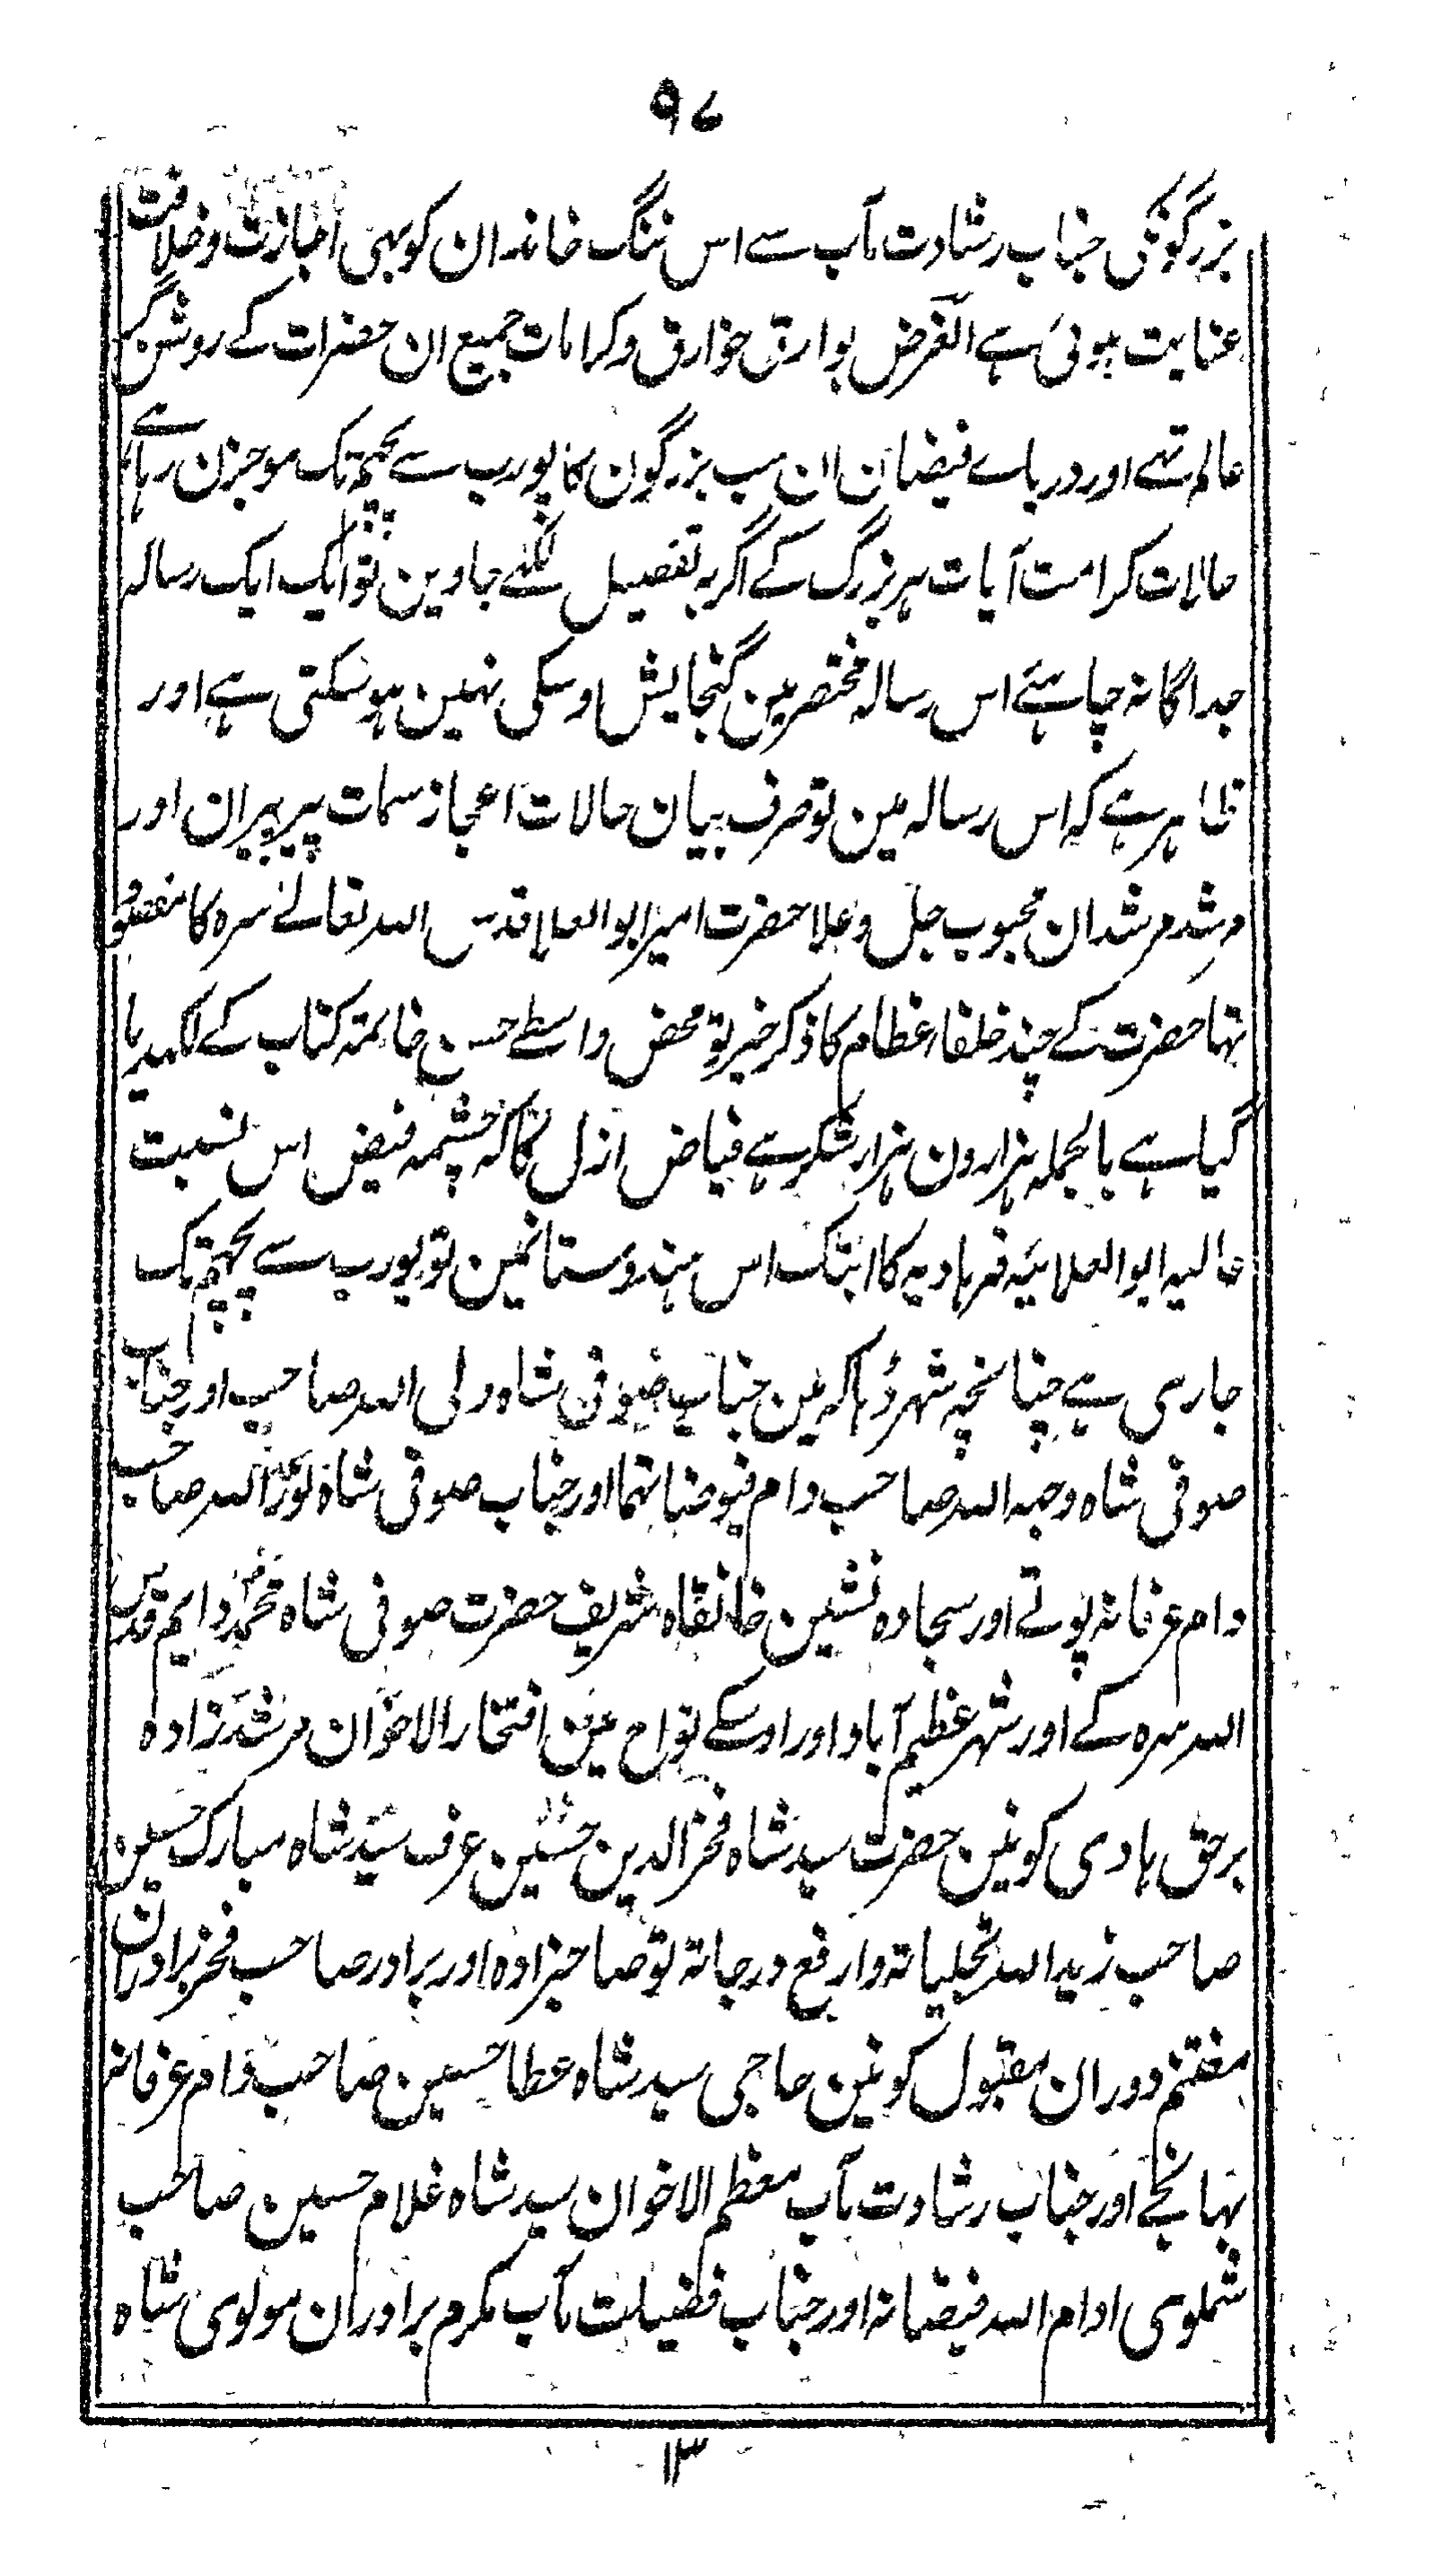 ۹۷
بزرگونکی جناب رشادت مآب سے اس ننگ خاندان کو بہی اجازت و خلافت
عنایت ہوئی ہے الغرض بوارق خوارق و کرامات جمیع ان حضرات کے روشن گر
عالم تہے اور دریاے فیضان ان سب بزرگون کا پورب سے پچھم تک موجزن رہا ہے
حالات کرامت آیات ہر بزرگ کے اگر بہ تفصیل لکہے جاوین تو ایک ایک رسالہ
جداگانہ چاہئے اس رسالہ مختصر مین گنجایش اوسکی نہین ہو سکتی ہے اور
ظاہر ہے کہ اس رسالہ مین تو صرف بیان حالات اعجاز سمات پیر پیران اور
مرشد مرشدان محبوب جل و علا حضرت امیر ابو العلا قدس اللہ تعالے سرہ کا مقصود
تہا حضرت کے چند خلفاء عظام کا ذکر خیر تو محض واسطے حسن خاتمہ کتاب کے لکہدیا
گیا ہے بالجملہ ہزارون ہزار شکر ہے فیاض ازل کا کہ چشمہ فیض اس نسبت
عالیہ ابو العلائیہ فرہادیہ کا ابتک اس ہندوستانمین تو پورب سے پچھم تک
جاری ہے چنانچہ شہر ڈہاکہ مین جناب صوفی شاہ ولی اللہ صاحب اور جناب
صوفی شاہ وجہ اللہ صاحب دام فیوضاتہما اور جناب صوفی شاہ نور اللہ صاحب
دام عرفانہ پوتے اور سجادہ نشین خانقاہ شریف حضرت صوفی شاہ محمد دایم قدس
اللہ سرہ کے اور شہر عظیم آباد اور اوسکے نواح مین افتخار الاخوان مرشد زادہ
برحق ہادی کونین حضرت سید شاہ فخر الدین حسین عرف سید شاہ مبارک حسین
صاحب زید اللہ تجلیاتہ و ارفع درجاتہ تو صاحبزادہ اور برادر صاحب فخر برادران
مغتنم دوران مقبول کونین حاجی سید شاہ عطا حسین صاحب دام عرفانہ
بہانجے اور جناب رشادت مآب معظم الاخوان سید شاہ غلام حسین صاحب
شملوی ادام اللہ فیضانہ اور جناب فضیلت مآب مکرم برادران مولوی شاہ
۱۳